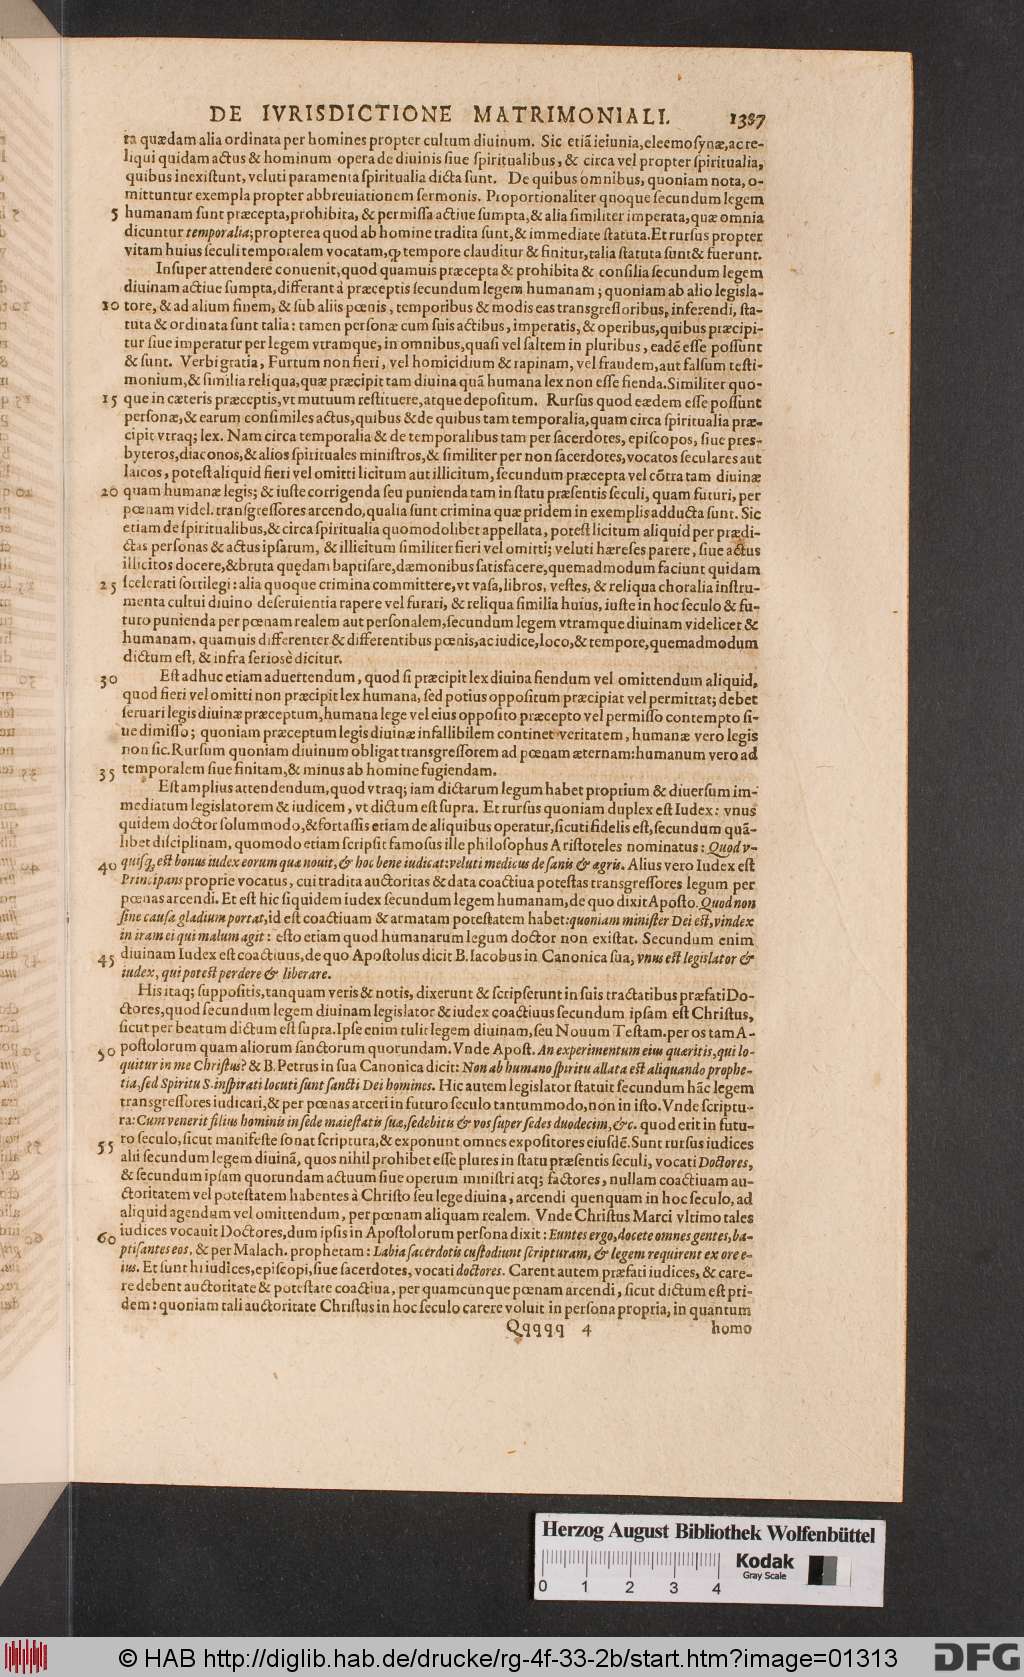 DE IVRISDICTIONE MATRIMONIALI. 1387
ta quædam alia ordinata per homines propter cultum diuinum. Sic etiã ieiunia, eleemosynæ, ac re-
liqui quidam actus & hominum opera de diuinis siue spiritualibus, & circa vel propter spiritualia,
quibus inexistunt, veluti paramenta spiritualia dicta sunt. De quibus omnibus, quoniam nota, o-
mittuntur exempla propter abbreuiationem sermonis. Proportionaliter quoque secundum legem
5 humanam sunt præcepta, prohibita, & permissa actiue sumpta, & alia similiter imperata, quæ omnia
dicuntur temporalia; propterea quod ab homine tradita sunt, & immediate statuta. Et rursus propter
vitam huius seculi temporalem vocatam, ꝙ tempore clauditur & finitur, talia statuta sunt & fuerunt.
Insuper attendere conuenit, quod quamuis præcepta & prohibita & consilia secundum legem
diuinam actiue sumpta, differant à præceptis secundum legem humanam; quoniam ab alio legisla-
10 tore, & ad alium finem, & sub aliis pœnis, temporibus & modis eas transgressoribus, inferendi, sta-
tuta & ordinata sunt talia: tamen personæ cum suis actibus, imperatis, & operibus, quibus præcipi-
tur siue imperatur per legem vtramque, in omnibus, quasi vel saltem in pluribus, eadẽ esse possunt
& sunt. Verbi gratia, Furtum non fieri, vel homicidium & rapinam, vel fraudem, aut falsum testi-
monium, & similia reliqua, quæ præcipit tam diuina quã humana lex non esse fienda. Similiter quo-
15 que in cæteris præceptis, vt mutuum restituere, atque depositum. Rursus quod eædem esse possunt
personæ, & earum consimiles actus, quibus & de quibus tam temporalia, quam circa spiritualia præ-
cipit vtraq; lex. Nam circa temporalia & de temporalibus tam per sacerdotes, episcopos, siue pres-
byteros, diaconos, & alios spirituales ministros, & similiter per non sacerdotes, vocatos seculares aut
laicos, potest aliquid fieri vel omitti licitum aut illicitum, secundum præcepta vel cõtra tam diuinæ
20 quam humanæ legis; & iuste corrigenda seu punienda tam in statu præsentis seculi, quam futuri, per
pœnam videl. transgressores arcendo, qualia sunt crimina quæ pridem in exemplis adducta sunt. Sic
etiam de spiritualibus, & circa spiritualia quomodolibet appellata, potest licitum aliquid per prædi-
ctas personas & actus ipsarum, & illicitum similiter fieri vel omitti; veluti hæreses parere, siue actus
illicitos docere, & bruta quędam baptisare, dæmonibus satisfacere, quemadmodum faciunt quidam
25 scelerati sortilegi: alia quoque crimina committere, vt vasa, libros, vestes, & reliqua choralia instru-
menta cultui diuino deseruientia rapere vel furari, & reliqua similia huius, iuste in hoc seculo & fu-
turo punienda per pœnam realem aut personalem, secundum legem vtramque diuinam videlicet &
humanam, quamuis differenter & differentibus pœnis, ac iudice, loco, & tempore, quemadmodum
dictum est, & infra seriosè dicitur.
30 Est adhuc etiam aduertendum, quod si præcipit lex diuina fiendum vel omittendum aliquid,
quod fieri vel omitti non præcipit lex humana, sed potius oppositum præcipiat vel permittat; debet
seruari legis diuinæ præceptum, humana lege vel eius opposito præcepto vel permisso contempto si-
ue dimisso; quoniam præceptum legis diuinæ infallibilem continet veritatem, humanæ vero legis
non sic. Rursum quoniam diuinum obligat transgressorem ad pœnam æternam: humanum vero ad
35 temporalem siue finitam, & minus ab homine fugiendam.
Est amplius attendendum, quod vtraq; iam dictarum legum habet proprium & diuersum im-
mediatum legislatorem & iudicem, vt dictum est supra. Et rursus quoniam duplex est Iudex: vnus
quidem doctor solummodo, & fortassis etiam de aliquibus operatur, sicuti fidelis est, secundum quã-
libet disciplinam, quomodo etiam scripsit famosus ille philosophus Aristoteles nominatus: Quod v-
40 quisq; est bonus iudex eorum quæ nouit, & hoc bene iudicat: veluti medicus de sanis & ægris. Alius vero Iudex est
Principans proprie vocatus, cui tradita auctoritas & data coactiua potestas transgressores legum per
pœnas arcendi. Et est hic siquidem iudex secundum legem humanam, de quo dixit Aposto. Quod non
sine causa gladium portat, id est coactiuam & armatam potestatem habet: quoniam minister Dei est, vindex
in iram ei qui malum agit: esto etiam quod humanarum legum doctor non existat. Secundum enim
45 diuinam Iudex est coactiuus, de quo Apostolus dicit B. Iacobus in Canonica sua, vnus est legislator &
iudex, qui potest perdere & liberare.
His itaq; suppositis, tanquam veris & notis, dixerunt & scripserunt in suis tractatibus præfati Do-
ctores, quod secundum legem diuinam legislator & iudex coactiuus secundum ipsam est Christus,
sicut per beatum dictum est supra. Ipse enim tulit legem diuinam, seu Nouum Testam. per os tam A-
50 postolorum quam aliorum sanctorum quorundam. Vnde Apost. An experimentum eius quæritis, qui lo-
quitur in me Christus? & B. Petrus in sua Canonica dicit: Non ab humano spiritu allata est aliquando prophe-
tia, sed Spiritu S. inspirati locuti sunt sancti Dei homines. Hic autem legislator statuit secundum hãc legem
transgressores iudicari, & per pœnas arceri in futuro seculo tantummodo, non in isto. Vnde scriptu-
ra: Cum venerit filius hominis in sede maiestatis suæ, sedebitis & vos super sedes duodecim, &c. quod erit in futu-
55 ro seculo, sicut manifeste sonat scriptura, & exponunt omnes expositores eiusdẽ. Sunt rursus iudices
alii secundum legem diuinã, quos nihil prohibet esse plures in statu præsentis seculi, vocati Doctores,
& secundum ipsam quorundam actuum siue operum ministri atq; factores, nullam coactiuam au-
ctoritatem vel potestatem habentes à Christo seu lege diuina, arcendi quenquam in hoc seculo, ad
aliquid agendum vel omittendum, per pœnam aliquam realem. Vnde Christus Marci vltimo tales
60 iudices vocauit Doctores, dum ipsis in Apostolorum persona dixit: Euntes ergo, docete omnes gentes, ba-
ptisantes eos, & per Malach. prophetam: Labia sacerdotis custodiunt scripturam, & legem requirent ex ore e-
ius. Et sunt hi iudices, episcopi, siue sacerdotes, vocati doctores. Carent autem præfati iudices, & care-
re debent auctoritate & potestate coactiua, per quamcunque pœnam arcendi, sicut dictum est pri-
dem: quoniam tali auctoritate Christus in hoc seculo carere voluit in persona propria, in quantum
Qqqqq 4 homo
Herzog August Bibliothek Wolfenbüttel
Kodak
Gray Scale
0 1 2 3 4
© HAB http://diglib.hab.de/drucke/rg-4f-33-2b/start.htm?image=01313
DFG